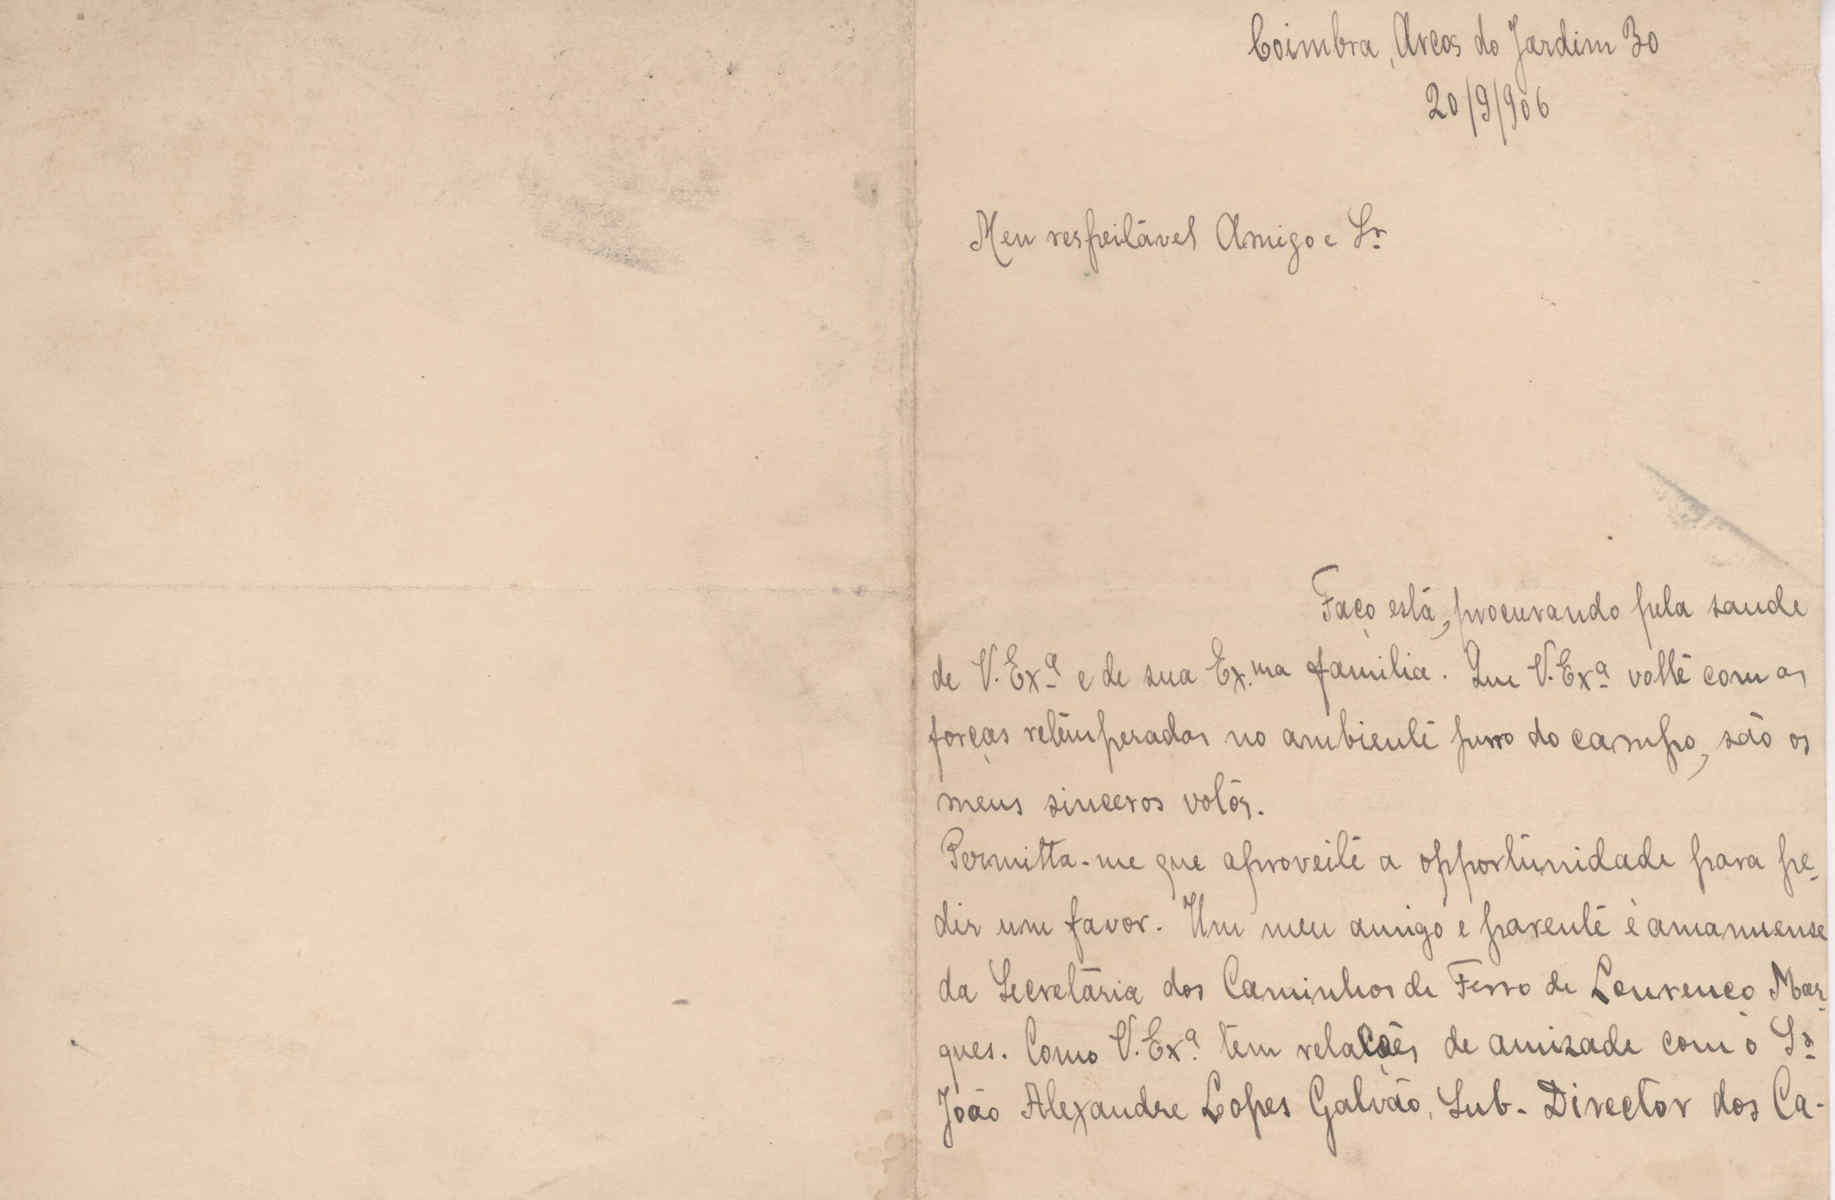 Coimbra, Arcos do Jardim 30
20/9/906
Meu respeitavel Amigo e Sr.
Faço esta, procurando pela saude
de V. Exª e de sua Ex.ma familia. Que V. Exª volte com as
forças retemperadas no ambiente puro do campo, são os
meus sinceros votos.
Permitta-me que aproveite a opportunidade para pe-
dir um favor. Um meu amigo e parente é amanuense
da Secretaria dos Caminhos de Ferro de Lourenço Mar-
ques. Como V. Exª tem relações de amizade com o Sr.
João Alexandre Lopes Galvão, Sub-Director dos Ca-